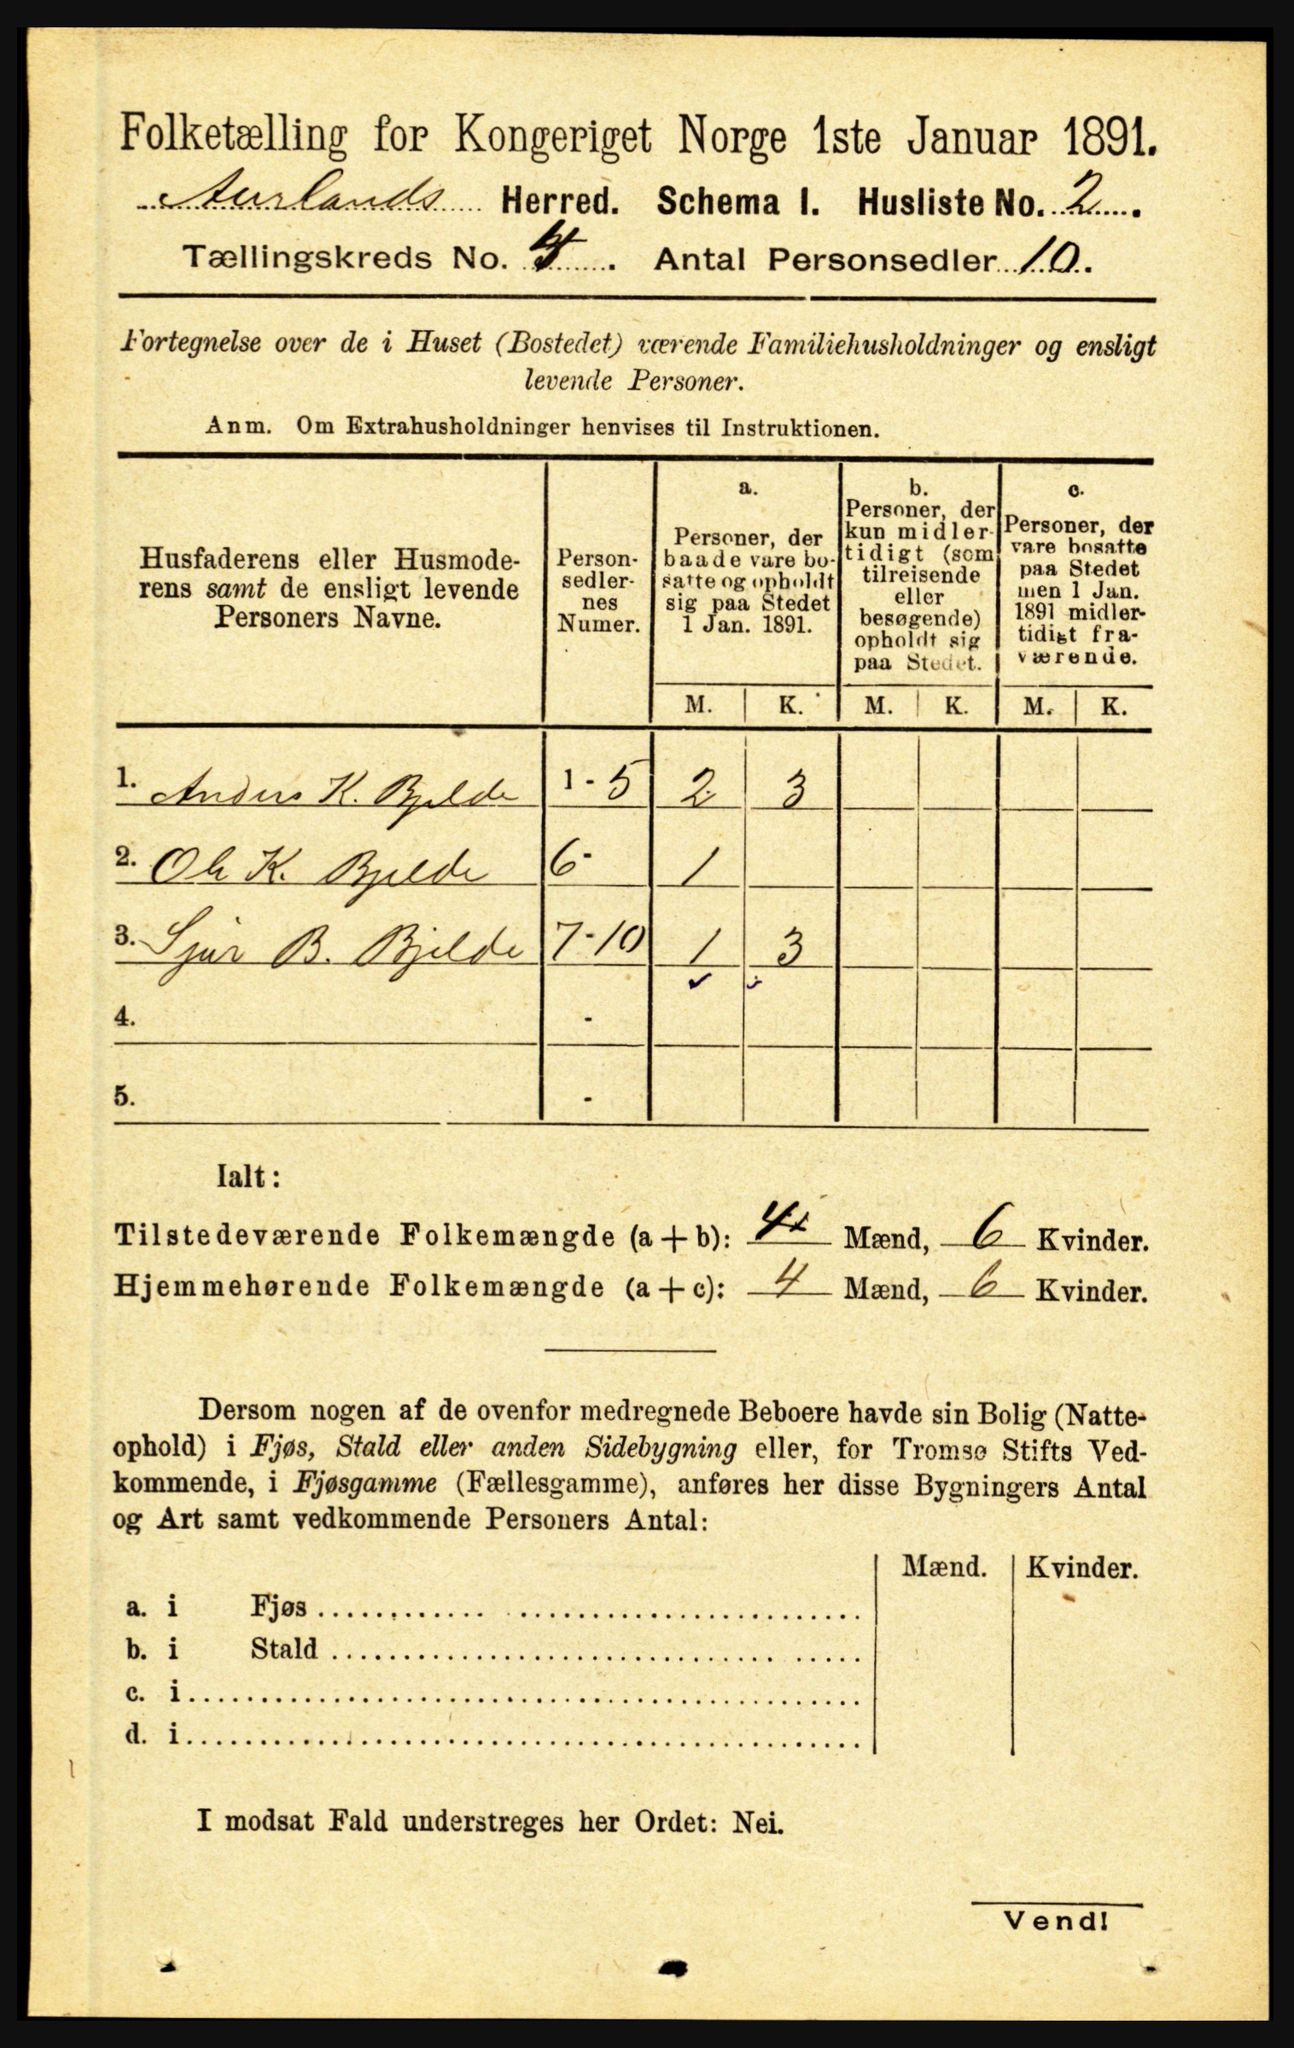 Folketælling for Kongeriget Norge 1ste Januar 1891.
Aurlands Herred. Schema I. Husliste No. 2.
Tællingskreds No. . Antal Personsedler 10.
Fortegnelse over de i Huset (Bostedet) værende Familiehusholdninger og ensligt
levende Personer.
Anm. Om Extrahusholdninger henvises til Instruktionen.
Husfaderens eller Husmode-
rens samt de ensligt levende
Personers Navne.
Person-
sedler-
nes
Numer.
a.
Personer, der
baade vare bo-
satte og opholdt
sig paa Stedet
1 Jan. 1891.
b.
Personer, der
kun midler-
tidigt (som
tilreisende
eller
besøgende)
opholdt sig
paa Stedet.
c.
Personer, der
vare bosatte
paa Stedet
men 1 Jan.
1891 midler-
tidigt fra-
værende.
M. K. M. K. M. K.
1. Anders K. Bjelde 1 - 5 2 3
2. Ole K. Bjelde 6 - 1
3. Sjur B. Bjelde 7 - 10 1 3
4. -
5. -
Ialt:
Tilstedeværende Folkemængde (a + b): 4 Mænd, 6 Kvinder.
Hjemmehørende Folkemængde (a + c): 4 Mænd, 6 Kvinder.
Dersom nogen af de ovenfor medregnede Beboere havde sin Bolig (Natte-
ophold) i Fjøs, Stald eller anden Sidebygning eller, for Tromsø Stifts Ved-
kommende, i Fjøsgamme (Fællesgamme), anføres her disse Bygningers Antal
og Art samt vedkommende Personers Antal:
Mænd. Kvinder.
a. i Fjøs
b. i Stald
c. i
d. i
I modsat Fald understreges her Ordet: Nei.
Vend!